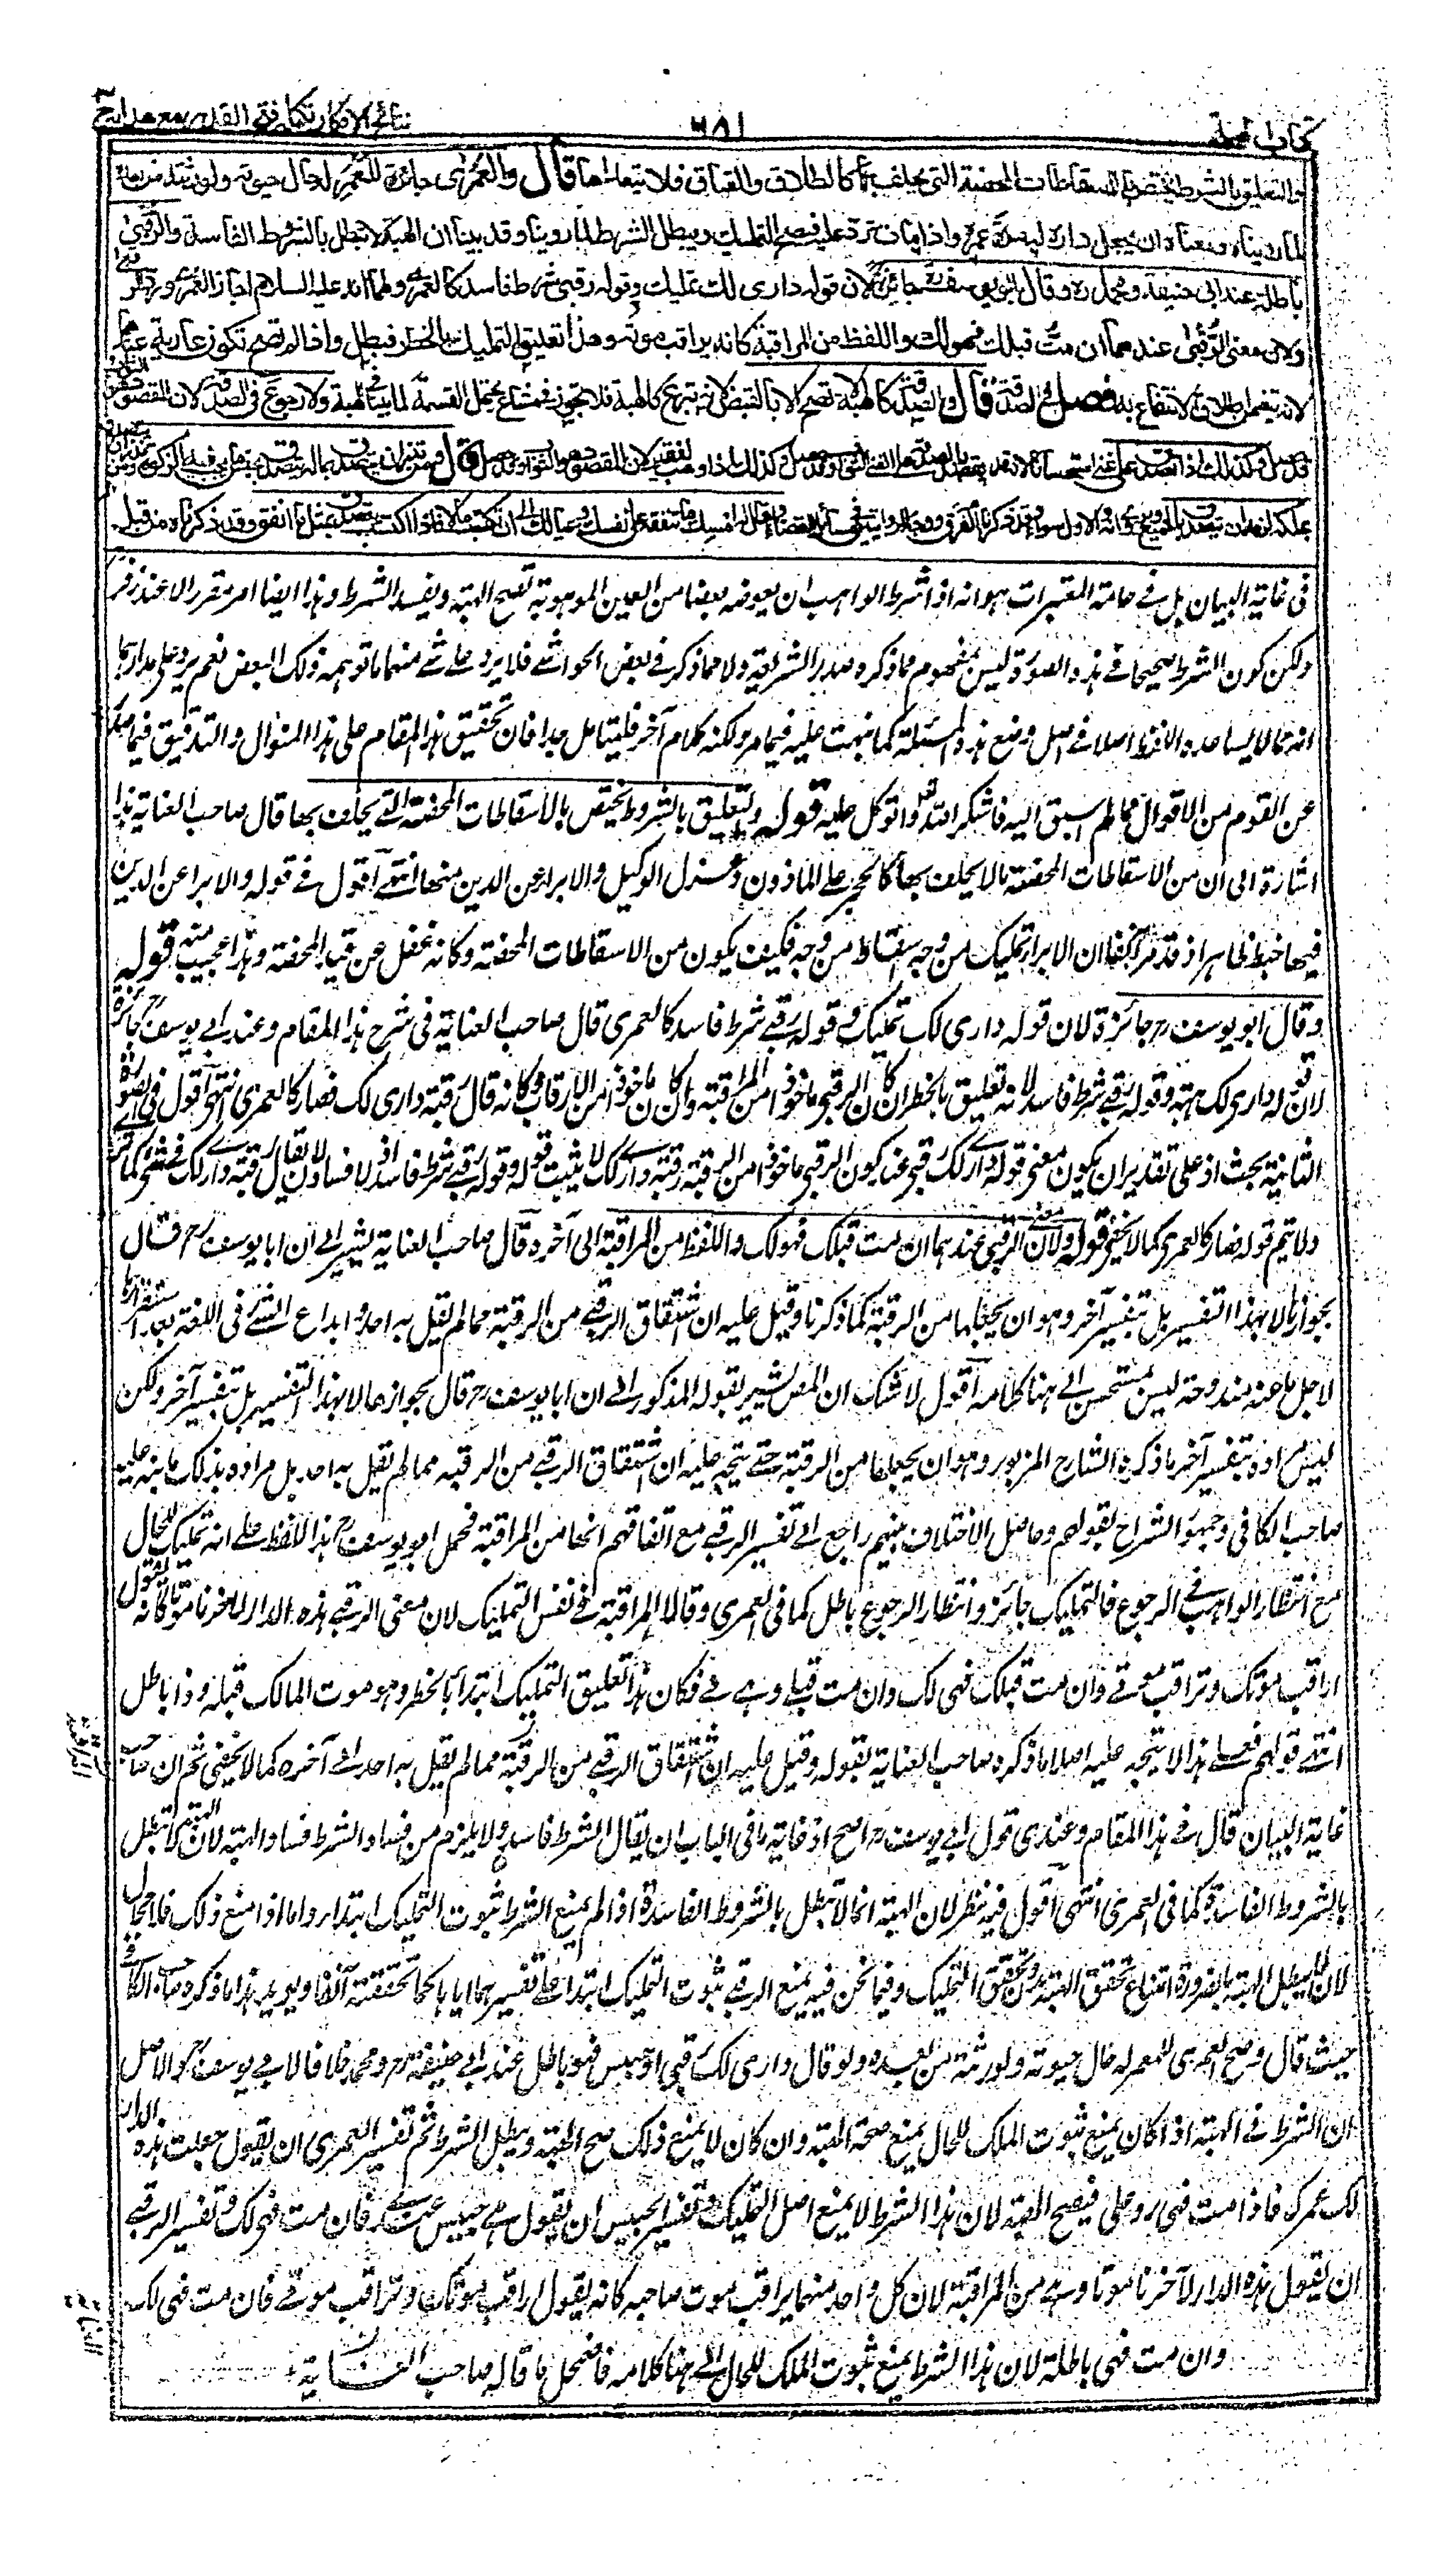 نتائج الافكار تكملة فتح القدير مع هداية
٦٥١
كتاب الهبة
والتعليق بالشرط يختص بالاسقاطات المحضة التي يحلف بها كالطلاق والعتاق فلا يتعداها قال والعمرى جائزة للمعمر له حال حيوته ولورثته من بعده
لما رويناه ومعناه ان يجعل داره له مدة عمره واذا مات ترد عليه فيصح التمليك ويبطل الشرط لما روينا وقد بينا ان الهبة لا تبطل بالشروط الفاسدة والرقبى
باطلة عند ابي حنيفة ومحمد ره وقال ابو يوسف جائزة لان قوله داري لك تمليك وقوله رقبى شرط فاسد كالعمرى ولهما انه عليه السلام اجاز العمرى ورد الرقبى
ولان معنى الرقبى عندهما ان مت قبلك فهو لك واللفظ من المراقبة كانه يراقب موته وهذا تعليق التمليك بالخطر فبطل واذا لم تصح تكون عارية عندهما
لانه يتضمن اطلاق الانتفاع به فصل في الصدقة قال والصدقة كالهبة لا تصح الا بالقبض لانه تبرع كالهبة فلا تجوز في مشاع يحتمل القسمة لما بينا في الهبة ولا رجوع في الصدقة لان المقصود
قد حصل وكذلك اذا تصدق على غني استحسانا لانه قد يقصد بالصدقة على الغني الثواب وقد حصل وكذلك اذا وهب لفقير لان المقصود هو الثواب وقد حصل قال ومن نذر ان يتصدق بماله يتصدق بجنس ما يجب فيه الزكوة ومن
بملكه لزمه ان يتصدق بالجميع ويروى انه والاول سواء وقد ذكرنا الفرق ووجه الروايتين في مسائل القضاء ويقال له امسك ما تنفقه على نفسك وعيالك الى ان تكتسب مالا فاذا اكتسب يتصدق بمثل ما انفق وقد ذكرناه من قبل
في غاية البيان بل في عامة المعتبرات هو انه اذا شرط الواهب ان يعوضه بعضا من العين الموهوبة تصح الهبة ويفسد الشرط وهذا ايضا امر مقرر الا عند زفر
ولكن كون الشرط صحيحا في هذه الصورة ليس بمفهوم مما ذكره صدر الشريعة ولا مما ذكر في بعض الحواشي فلا يرد على شيء منهما ما توهمه ذلك البعض نعم يرد على مدارهما
انه مما لا يساعده اللفظ اصلا في اصل وضع هذه المسئلة كما نبهت عليه فيما مر ولكنه كلام آخر فليتامل جدا فان تحقيق هذا المقام على هذا المنوال والتدقيق فيما صدر
عن القوم من الاقوال مما لم اسبق اليه فاشكر الله تعالى واتوكل عليه قوله والتعليق بالشروط يختص بالاسقاطات المحضة التي يحلف بها قال صاحب العناية هذا
اشارة الى ان من الاسقاطات المحضة ما لا يحلف بها كالحجر على الماذون وعزل الوكيل والابراء عن الدين منها انتهى اقول في قوله والابراء عن الدين
فيها خبط ظاهر اذ قد مر آنفا ان الابراء تمليك من وجه اسقاط من وجه فكيف يكون من الاسقاطات المحضة وكانه غفل عن قيد المحضة وهذا عجيب منه قوله
وقال ابو يوسف رح جائزة لان قوله داري لك تمليك وقوله رقبى شرط فاسد كالعمرى قال صاحب العناية في شرح هذا المقام وعند ابي يوسف رح جائزة
لان قوله داري لك هبة وقوله رقبى شرط فاسد لانه تعليق بالخطر ان كان الرقبى ماخوذا من المراقبة وان كان ماخوذا من الارقاب فكانه قال رقبة داري لك فصار كالعمرى انتهى اقول في الصورة
الثانية بحث اذ على تقدير ان يكون معنى قوله داري لك رقبى عند كون الرقبى ماخوذا من الرقبة رقبة داري لك لا يثبت قوله وقوله رقبى شرط فاسد اذ لا فساد لان يقال رقبة داري لك في شيء كما ترى
ولا يتم قوله فصار كالعمرى كما لا يخفى قوله ولان معنى الرقبى عندهما ان مت قبلك فهو لك واللفظ من المراقبة الى آخره قال صاحب العناية يشير الى ان ابا يوسف رح قال
بجوازها لا بهذا التفسير بل بتفسير آخر وهو ان يجعلها من الرقبة كما ذكرنا وقيل عليه ان اشتقاق الرقبى من الرقبة مما لم يقل به احد وابداع الشيء في اللغة بعد استقرارها
لاجل ما عنه مندوحة ليس بمستحسن الى هنا كلامه اقول لا شك ان المص يشير بقوله المذكور الى ان ابا يوسف رح قال بجوازها لا بهذا التفسير بل بتفسير آخر ولكن
ليس مراده بتفسير آخر ما ذكره الشارح المزبور وهو ان يجعلها من الرقبة حتى يتجه عليه ان اشتقاق الرقبى من الرقبة مما لم يقل به احد بل مراده بذلك ما نبه عليه
صاحب الكافي وجمهور الشراح بقولهم وحاصل الاختلاف بينهم راجع الى تفسير الرقبى مع اتفاقهم انها من المراقبة فحمل ابو يوسف رح هذا اللفظ على انه تمليك للحال
مع انتظار الواهب في الرجوع فالتمليك جائز وانتظار الرجوع باطل كما في العمرى وقالا المراقبة في نفس التمليك لان معنى الرقبى هذه الدار لآخرنا موتا كانه يقول
اراقب موتك وتراقب موتي فان مت قبلك فهي لك وان مت قبلي فهي لي فكان هذا تعليق التمليك ابتداء بالخطر وهو موت المالك قبله وذا باطل
انتهى قولهم فعلى هذا لا يتجه عليه اصلا ما ذكره صاحب العناية بقوله وقيل عليه ان اشتقاق الرقبى من الرقبة مما لم يقل به احد الى آخره كما لا يخفى ثم ان صاحب
غاية البيان قال في هذا المقام وعندي قول ابي يوسف رح اصح اذ غاية ما في الباب ان يقال الشرط فاسد ولا يلزم من فساد الشرط فساد الهبة لان الهبة لا تبطل
بالشروط الفاسدة كما في العمرى انتهى اقول فيه نظر لان الهبة انما لا تبطل بالشروط الفاسدة اذا لم يمنع الشرط ثبوت التمليك ابتداء واما اذا منع ذلك فلا مجال
لان لا يبطل الهبة بالضرورة امتناع تحقق الهبة بدون تحقق التمليك وفيما نحن فيه يمنع الرقبى ثبوت التمليك ابتداء على تفسيرهما اياها كما تحققته آنفا ويؤيد هذا ما ذكره صاحب الكافي
حيث قال وصح العمرى للمعمر له حال حيوته ولورثته من بعده ولو قال داري لك رقبى او حبيس فهو باطل عند ابي حنيفة رح ومحمد رح خلافا لابي يوسف رح والاصل
ان الشرط في الهبة اذا كان يمنع ثبوت الملك للحال يمنع صحة الهبة وان كان لا يمنع ذلك صح الهبة ويبطل الشرط ثم تفسير العمرى ان يقول جعلت هذه الدار
لك عمرك فاذا مت فهي رد علي فيصح الهبة لان هذا الشرط لا يمنع اصل التمليك وتفسير الحبيس ان يقول هي حبيس عندك فان مت فهي لك وتفسير الرقبى
ان يقول هذه الدار لآخرنا موتا وهي من المراقبة لان كل واحد منهما يراقب موت صاحبه كانه يقول اراقب موتك وتراقب موتي فان مت فهي لك
وان مت فهي باطلة لان هذا الشرط يمنع ثبوت الملك للحال الى هنا كلامه فاضمحل ما قاله صاحب الغاية